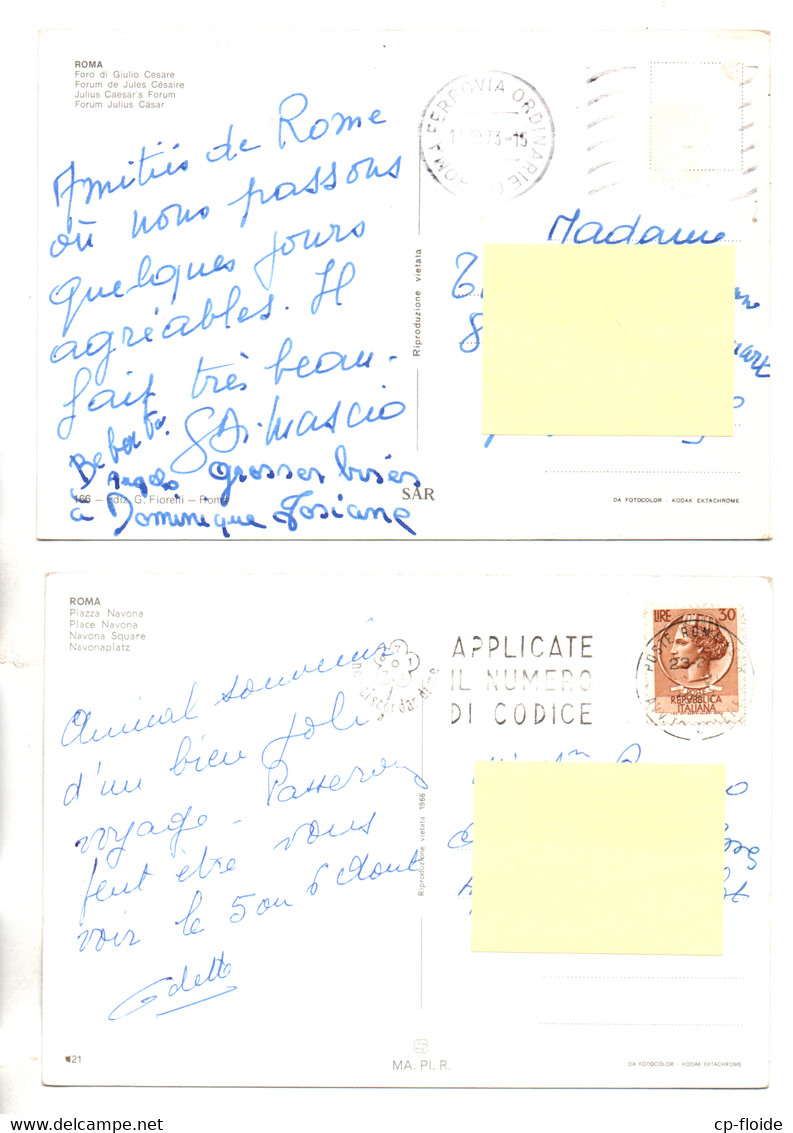 ROMA
Foro di Giulio Cesare
Forum de Jules Césaire
Julius Caesar's Forum
Forum Julius Cäsar
ROMA FERROVIA ORDINARIE
Amitiés de Rome
où nous passons
quelques jours
agréables. Il
fait très beau.
Di Mascio
grosses bises
à Dominique Josiane
Madame
Riproduzione vietata
166 – Ediz. G. Fiorelli – Roma
SAR
DA FOTOCOLOR - KODAK EKTACHROME
ROMA
Piazza Navona
Place Navona
Navona Square
Navonaplatz
APPLICATE
IL NUMERO
DI CODICE
LIRE 30
POSTE ROMA
REPVBBLICA
ITALIANA
Amical souvenir
d'un bien joli
voyage - Passerons
peut être vous
voir le 5 ou 6 Aout
Odette
Riproduzione vietata 1966
21
MA. PI. R.
DA FOTOCOLOR - KODAK EKTACHROME
www.delcampe.net
cp-floide